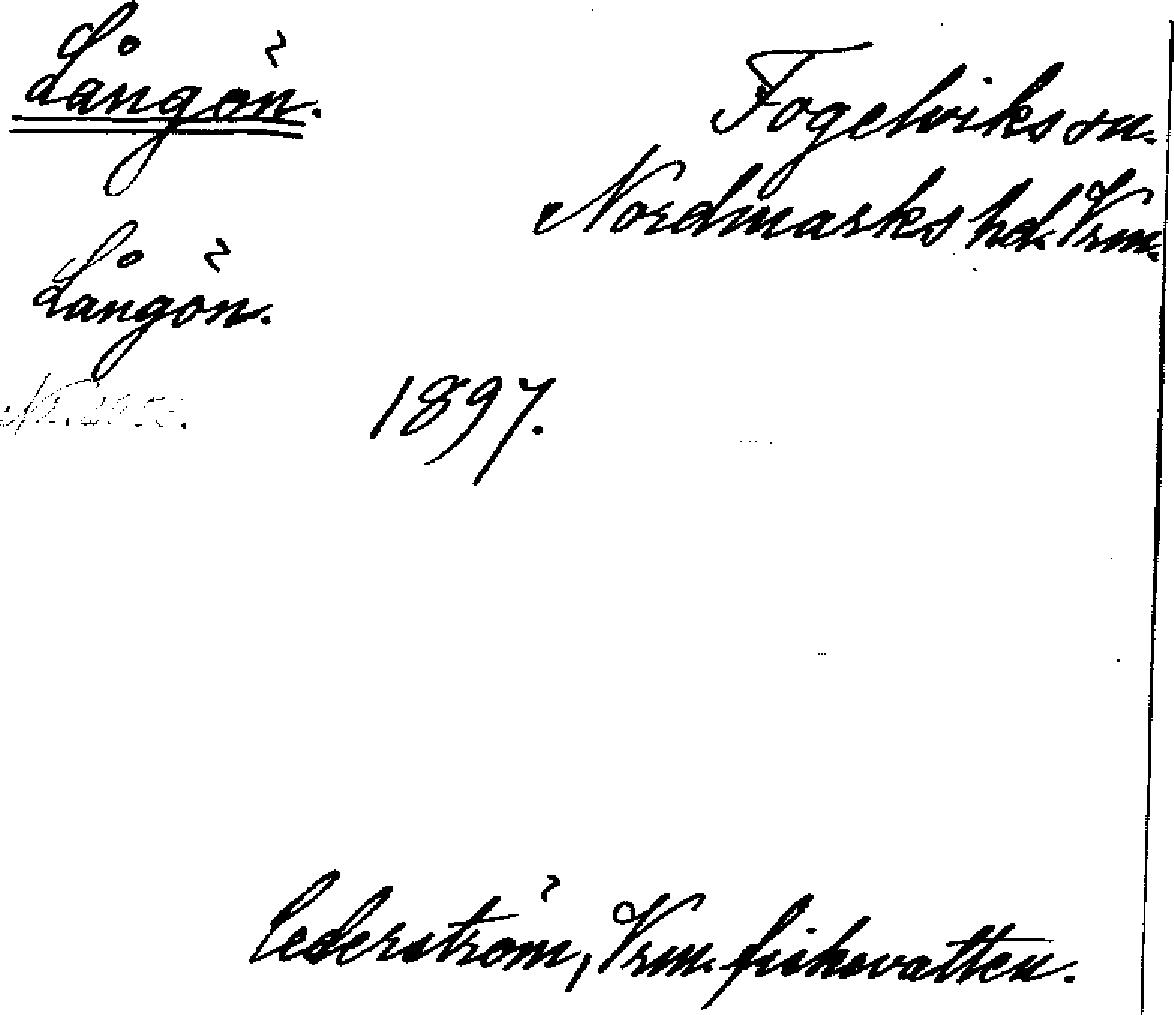 Långön.
Fogelviks sn.
Nordmarks hd. Vrm.
Långön.
1897.
Cederström, Vrm. fiskevatten.